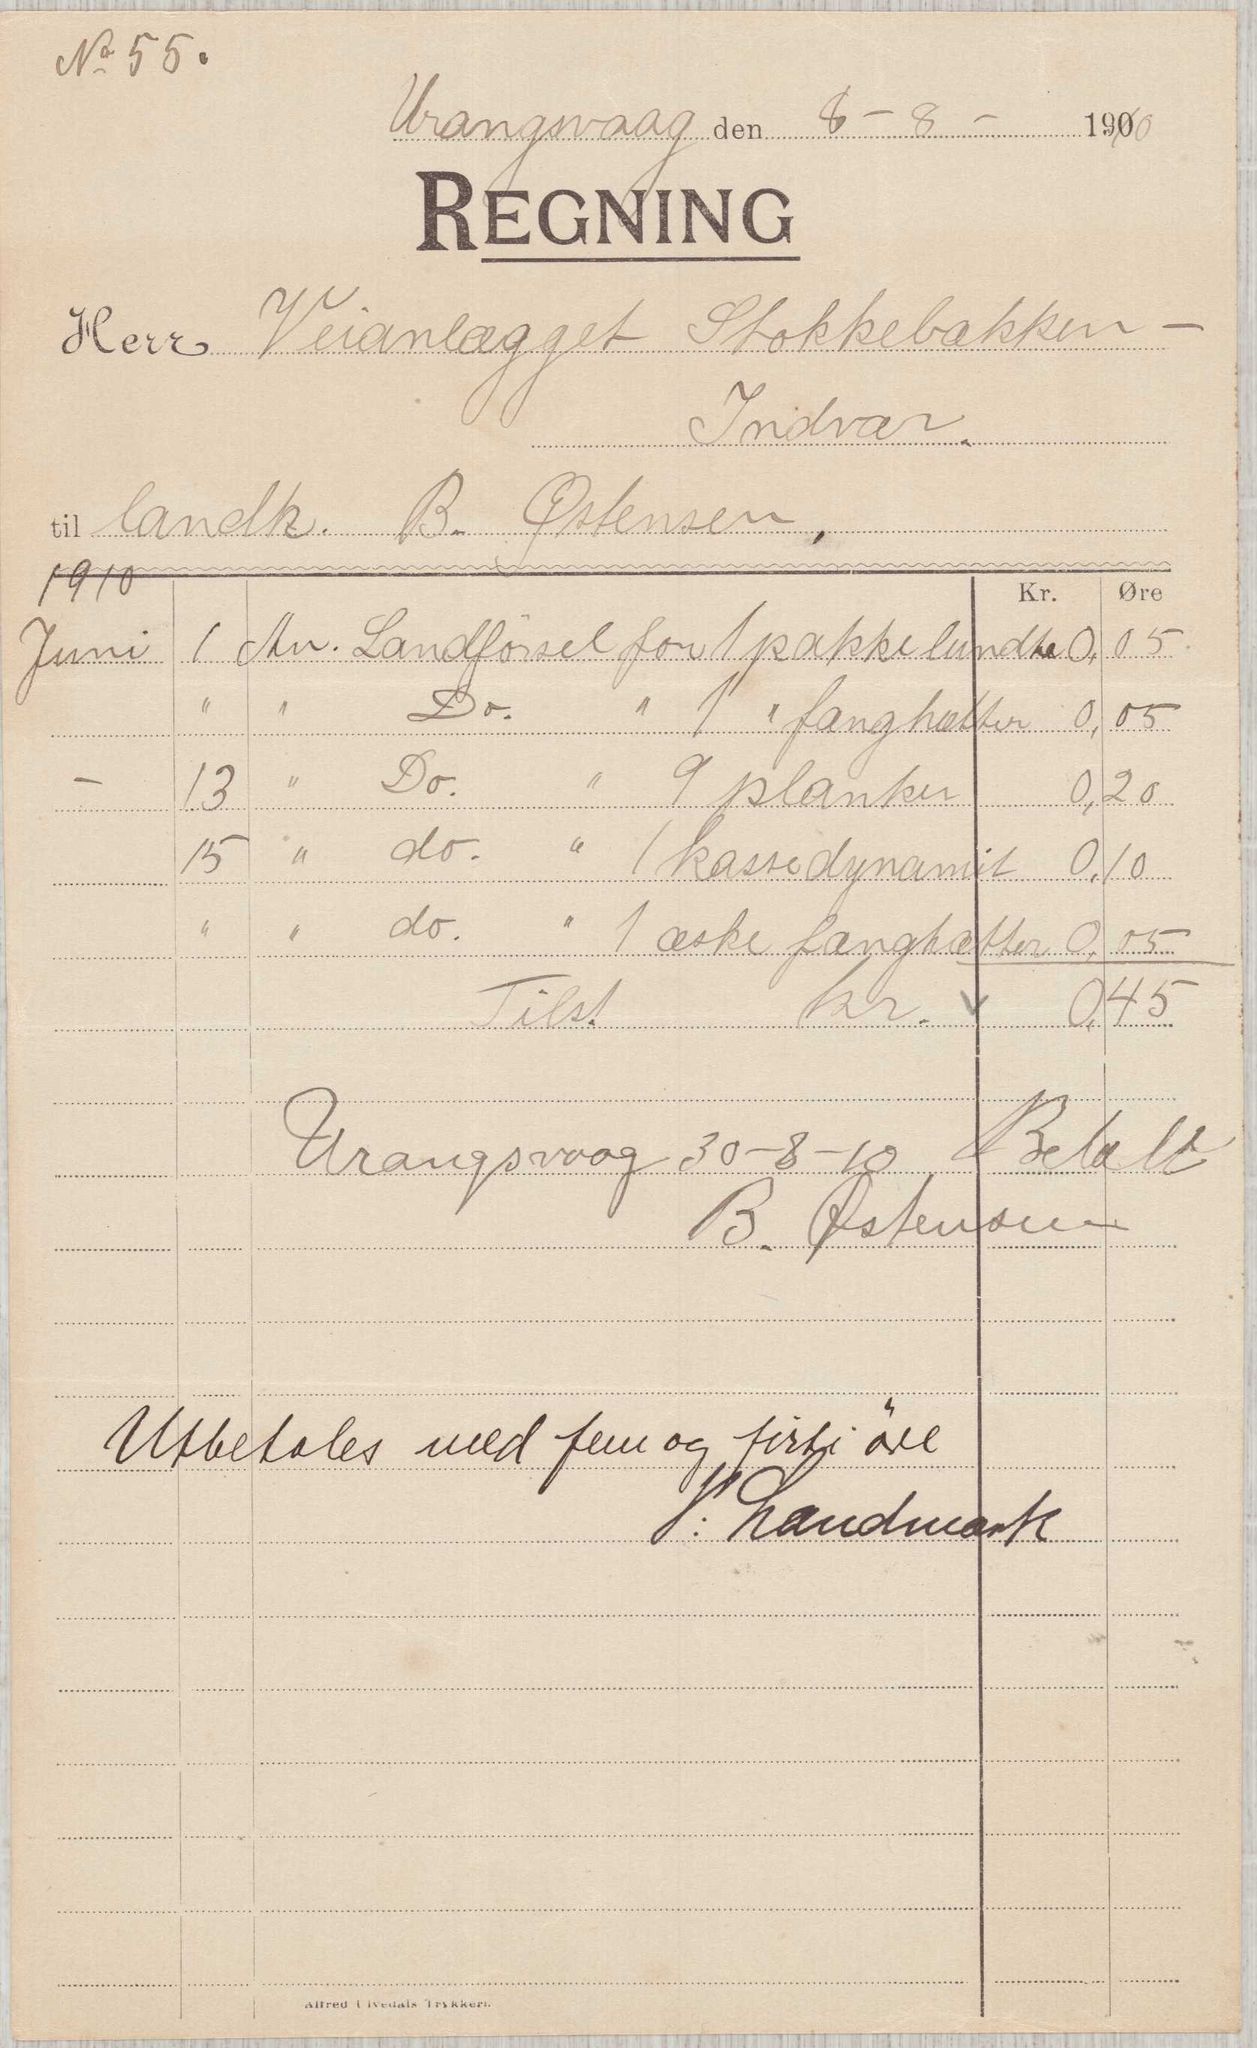 No 55.
Urangsvaag den 8 - 8 - 1910
REGNING
Herr Veianlægget Stokkebækken -
Indvær.
til landh. B. Østensen,
1910
Kr. Øre
Juni 1 An. Landförsel for 1 pakke lundte 0,05
" " Do. " 1 " fænghætter 0,05
- 13 " Do. " 9 planker 0,20
15 " do. " 1 kasse dynamit 0,10
" " do. " 1 æske fænghætter 0,05
Tilst. kr. 0,45
Urangsvaag 30-8-10 Betalt
B. Østensen
Utbetales med fem og firti öre
Landmark
Alfred Utvedals Trykkeri.